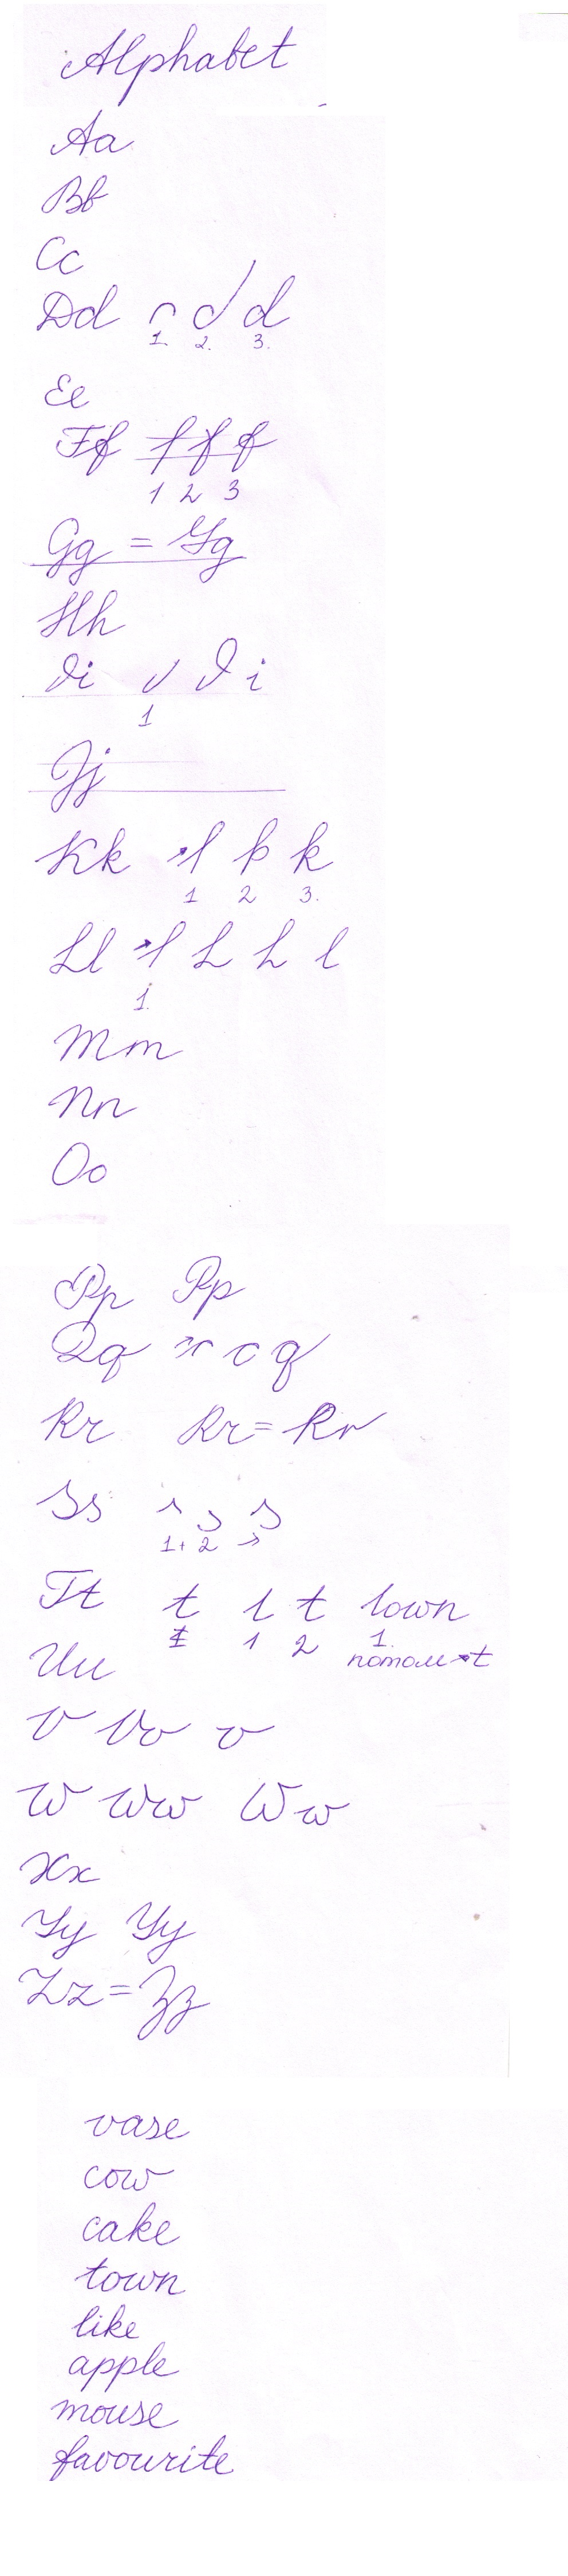 Alphabet
Aa
Bb
Cc
Dd
1. 2. 3.
Ee
Ff f f f
1 2 3
Gg = Gg
Hh
Ii I i
1
Jj
Kk k k
1 2 3.
Ll L L l
1.
Mm
Nn
Oo
Pp Pp
Qq c q
Rr Rr = Rr
Ss s
1+2 →
Tt t t town
1 2 1.
Uu потом → t
V Vv v
W Ww Ww
Xx
Yy Yy
Zz = Zz
vase
cow
cake
town
like
apple
mouse
favourite